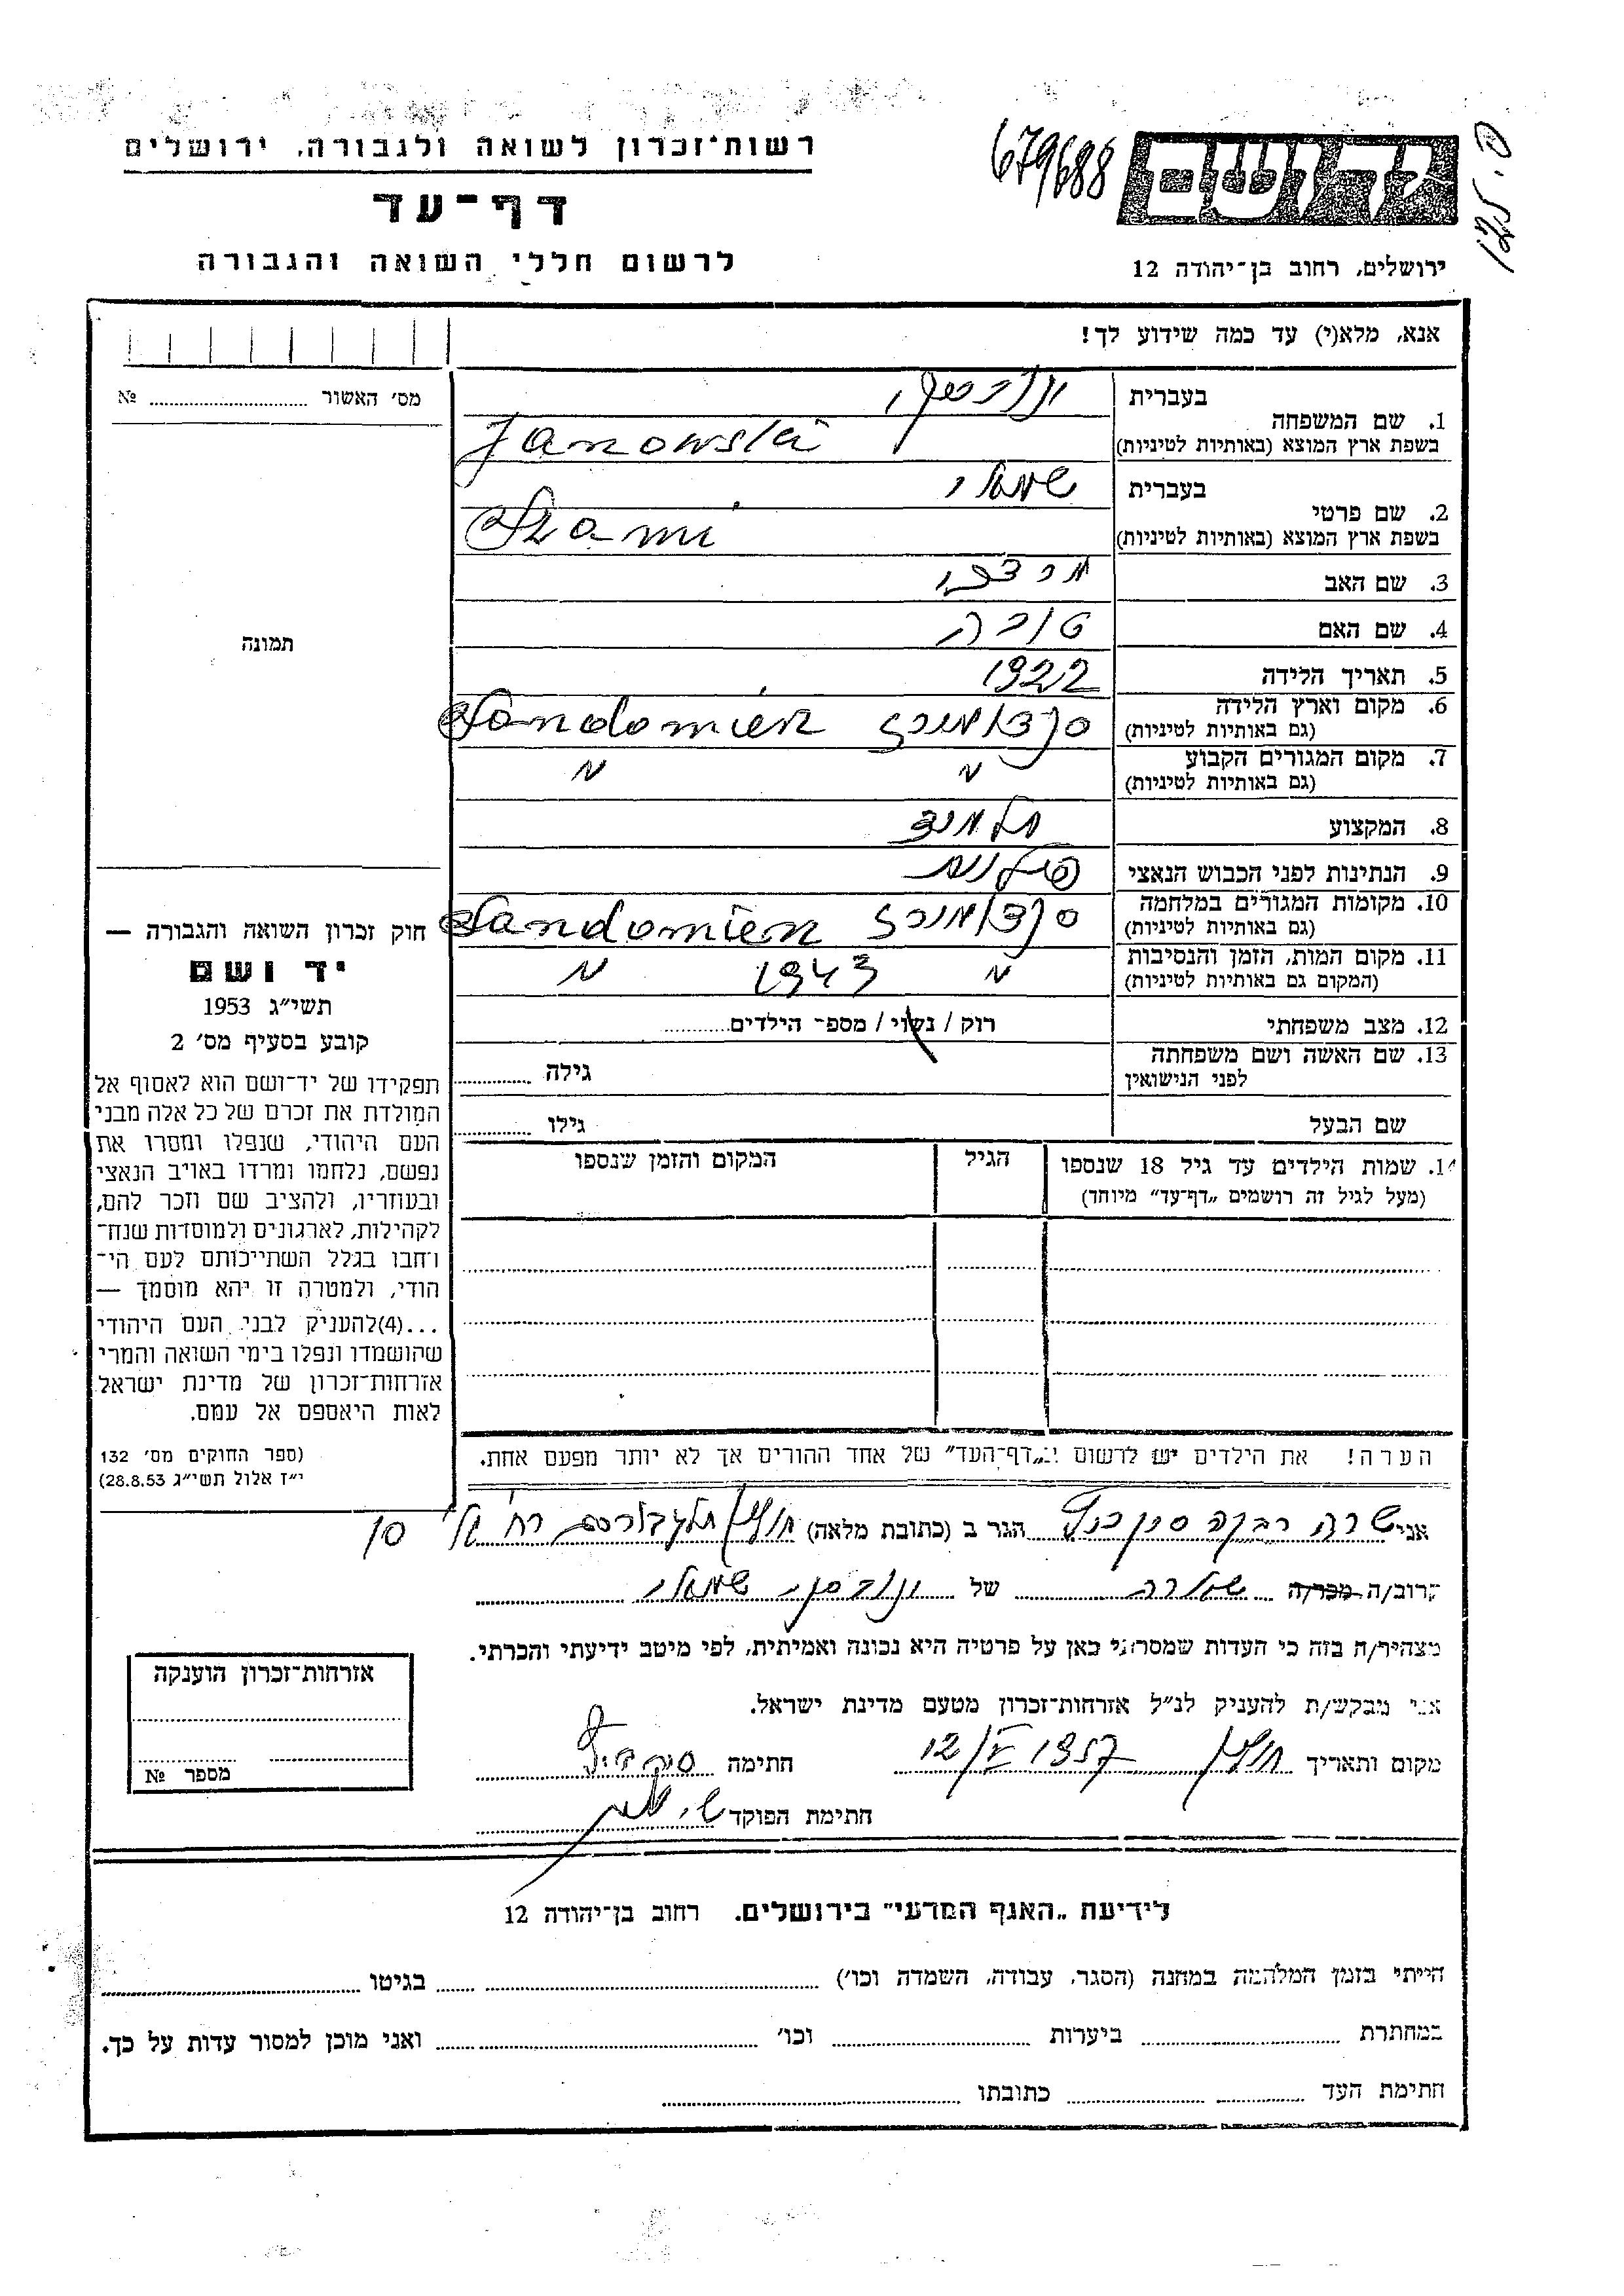 רשות־זכרון לשואה ולגבורה, ירושלים
679688
דף־עד
לרשום חללי השואה והגבורה
ירושלים, רחוב בן־יהודה 12
אנא, מלא(י) עד כמה שידוע לך!
מס׳ האשור № 
1. שם המשפחה
בעברית ינובסקי
בשפת ארץ המוצא (באותיות לטיניות) Janowski
2. שם פרטי
בעברית שמאי
בשפת ארץ המוצא (באותיות לטיניות) Szami
3. שם האב מרדכי
4. שם האם טובה
5. תאריך הלידה 1922
6. מקום וארץ הלידה סנדומירז Sandomierz
(גם באותיות לטיניות)
7. מקום המגורים הקבוע " "
(גם באותיות לטיניות)
8. המקצוע תלמיד
9. הנתינות לפני הכבוש הנאצי פולנית
10. מקומות המגורים במלחמה סנדומירז Sandomierz
(גם באותיות לטיניות)
11. מקום המות, הזמן והנסיבות " 1943 "
(המקום גם באותיות לטיניות)
12. מצב משפחתי רוק / נשוי / מספ־ הילדים
13. שם האשה ושם משפחתה
לפני הנישואין גילה
שם הבעל גילו
14. שמות הילדים עד גיל 18 שנספו הגיל המקום והזמן שנספו
(מעל לגיל זה רושמים „דף־עד” מיוחד)
הערה! את הילדים יש לרשום ב„דף־העד” של אחד ההורים אך לא יותר מפעם אחת.
תמונה
חוק זכרון השואה והגבורה —
יד ושם
תשי״ג 1953
קובע בסעיף מס׳ 2
תפקידו של יד־ושם הוא לאסוף אל
המולדת את זכרם של כל אלה מבני
העם היהודי, שנפלו ומסרו את
נפשם, נלחמו ומרדו באויב הנאצי
ובעוזריו, ולהציב שם וזכר להם,
לקהילות, לארגונים ולמוסדות שנח־
רחבו בגלל השתייכותם לעם הי־
הודי, ולמטרה זו יהא מוסמך —
...(4)להעניק לבני העם היהודי
שהושמדו ונפלו בימי השואה והמרי
אזרחות־זכרון של מדינת ישראל
לאות היאספם אל עמם.
(ספר החוקים מס׳ 132
י״ז אלול תשי״ג 28.8.53)
אני שרה רבקה הגר ב (כתובת מלאה) חולון רח׳ 10
קרוב/ה מכר/ה של ינובסקי שמאי
מצהיר/ה בזה כי העדות שמסרתי כאן על פרטיה היא נכונה ואמיתית, לפי מיטב ידיעתי והכרתי.
אני מבקש/ת להעניק לנ״ל אזרחות־זכרון מטעם מדינת ישראל.
מקום ותאריך חולון 12/V 1957 חתימה
חתימת הפוקד
אזרחות־זכרון הוענקה
מספר №
לידיעת „האגף המדעי” בירושלים. רחוב בן־יהודה 12
הייתי בזמן המלחמה במחנה (הסגר, עבודה, השמדה וכו׳) בגיטו
במחתרת ביערות וכו׳ ואני מוכן למסור עדות על כך.
חתימת העד כתובתו